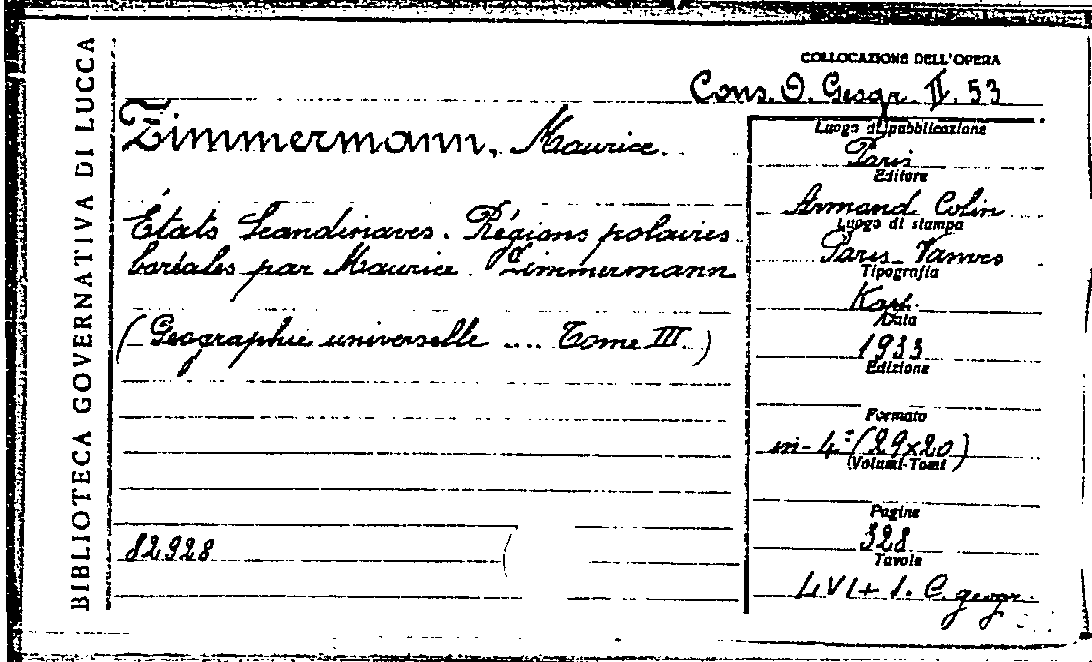 BIBLIOTECA GOVERNATIVA DI LUCCA
COLLOCAZIONE DELL'OPERA
Cons. O. Geogr. II. 53
Zimmermann, Maurice.
États Scandinaves. Régions polaires
boréales par Maurice Zimmermann
(Geographie universelle .... Tome III.)
82928
Luogo di pubblicazione
Paris
Editore
Armand Colin
Luogo di stampa
Paris-Vanves
Tipografia
Kapp.
Data
1933
Edizione
Formato
in-4° (29x20)
(Volumi-Tomi
Pagine
328
Tavole
LVI + 1. C. geogr.